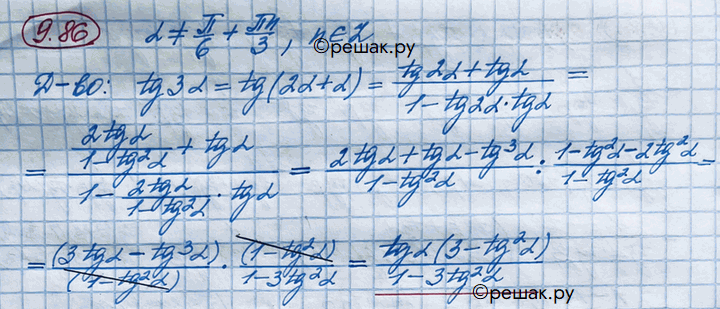 9.86 α ≠ π/6 + πn/3, n ∈ Z
©решак.ру
Д-во: tg3α = tg(2α+α) = (tg2α + tgα)/(1 - tg2α·tgα) =
= (2tgα/(1-tg²α) + tgα)/(1 - 2tgα/(1-tg²α) · tgα) = (2tgα + tgα - tg³α)/(1-tg²α) : (1-tg²α-2tg²α)/(1-tg²α) =
= (3tgα - tg³α)/(1-tg²α) · (1-tg²α)/(1-3tg²α) = tgα(3-tg²α)/(1-3tg²α)
©решак.ру